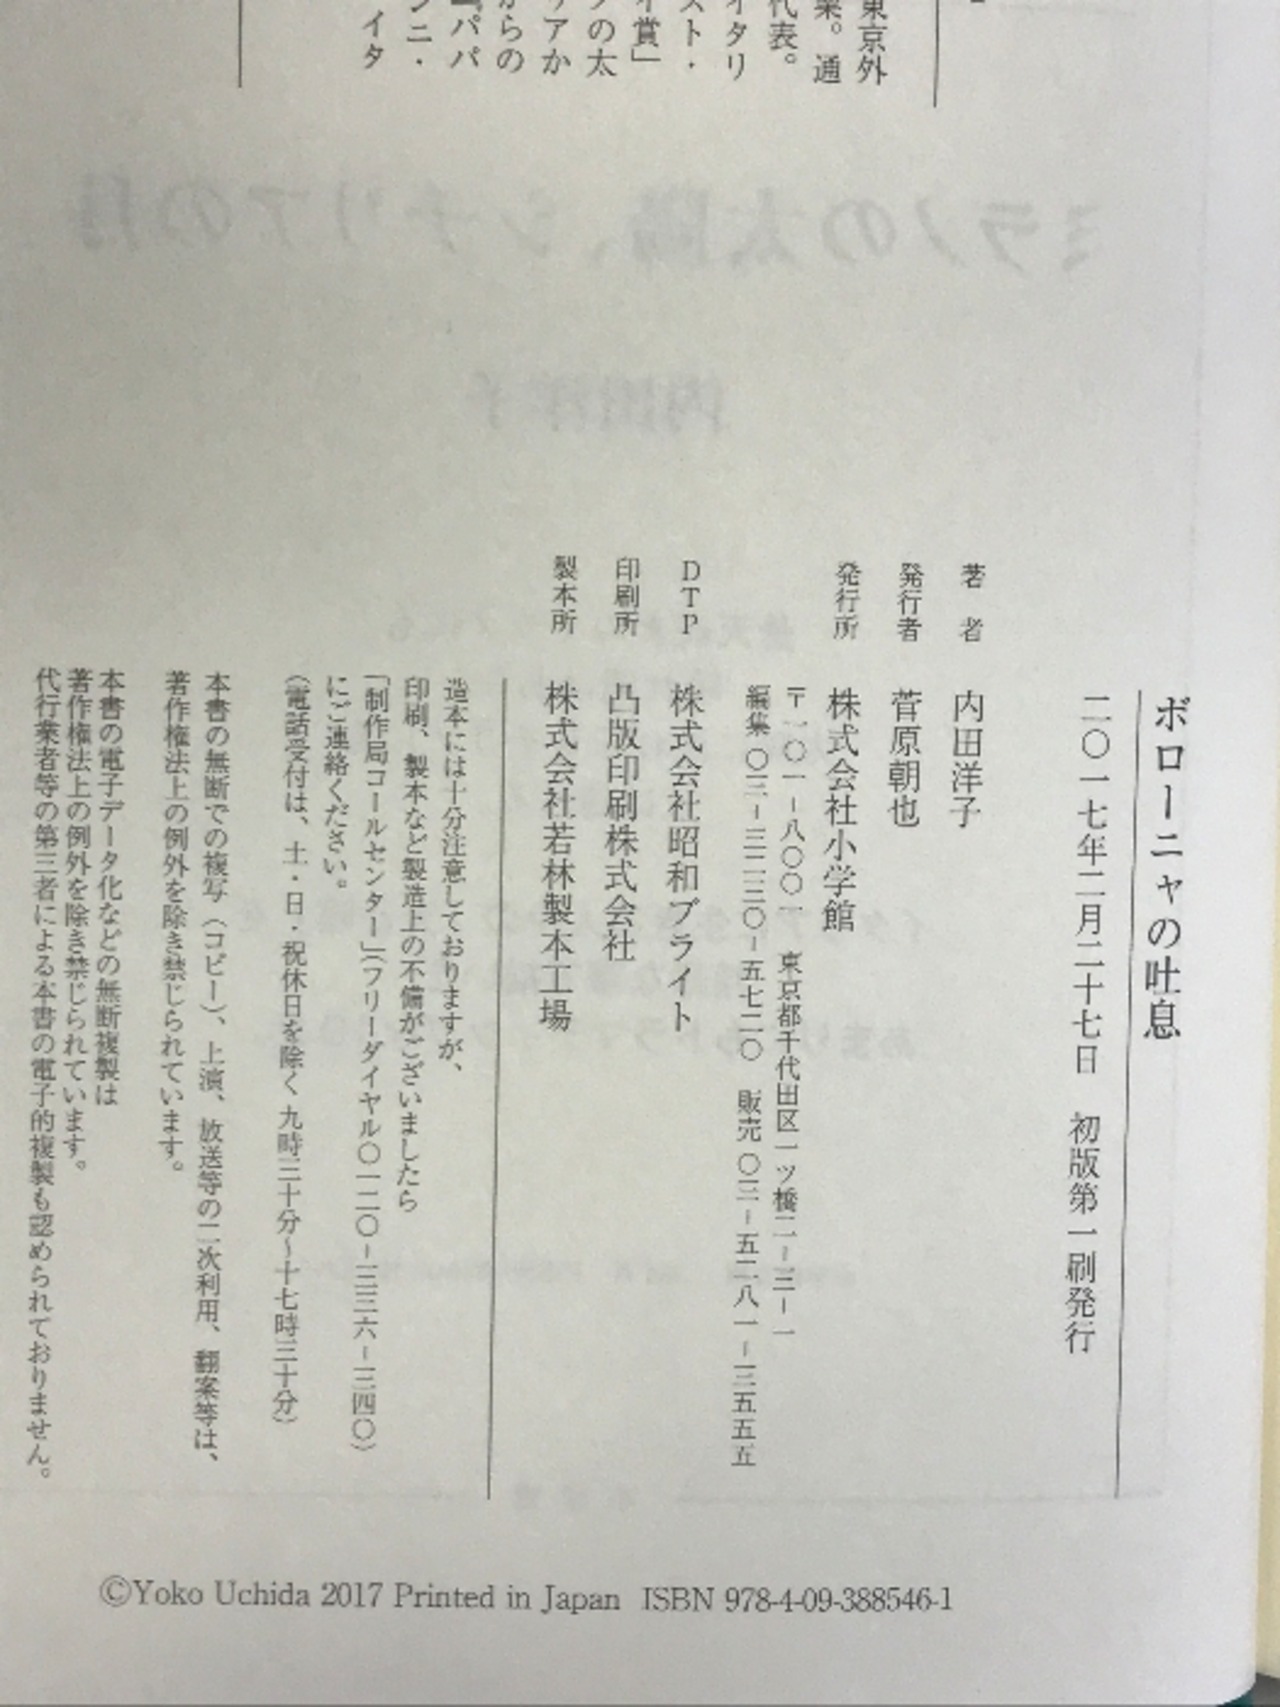 東京外
業。通
代表。
イタリ
スト・
イ賞」
ノの太
リアか
からの
『パパ
ンニ・
イタ
ボローニャの吐息
二〇一七年二月二十七日　初版第一刷発行
著　者　内田洋子
発行者　菅原朝也
発行所　株式会社小学館
〒一〇一－八〇〇一　東京都千代田区一ツ橋二－三－一
編集 〇三－三二三〇－五七二〇　販売 〇三－五二八一－三五五五
DTP　株式会社昭和ブライト
印刷所　凸版印刷株式会社
製本所　株式会社若林製本工場
造本には十分注意しておりますが、
印刷、製本など製造上の不備がございましたら
「制作局コールセンター」（フリーダイヤル〇一二〇－三三六－三四〇）
にご連絡ください。
（電話受付は、土・日・祝休日を除く 九時三十分〜十七時三十分）
本書の無断での複写（コピー）、上演、放送等の二次利用、翻案等は、
著作権法上の例外を除き禁じられています。
本書の電子データ化などの無断複製は
著作権法上の例外を除き禁じられています。
代行業者等の第三者による本書の電子的複製も認められておりません。
©Yoko Uchida 2017 Printed in Japan ISBN 978-4-09-388546-1
ミラノの太陽、シチリアの月
内田洋子